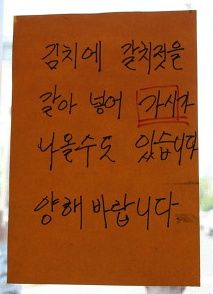 김치에 갈치젓을
갈아 넣어 가시가
나올수도 있습니다
양해 바랍니다